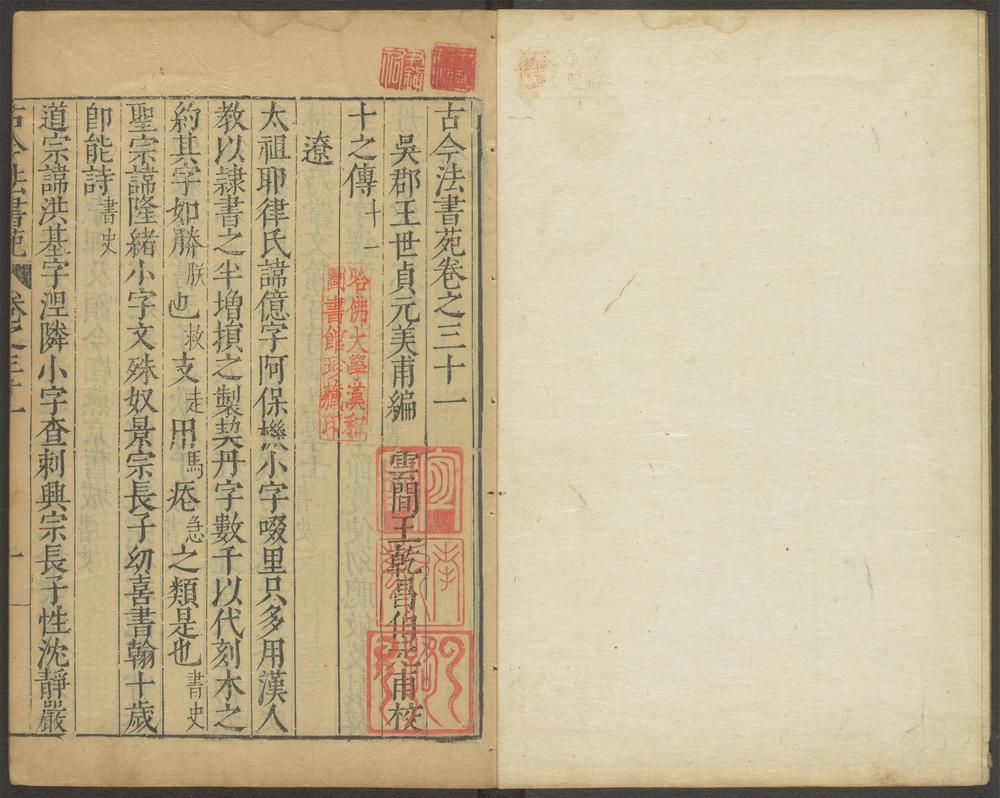 古今法書苑卷之三十一
吳郡王世貞元美甫編 雲間王乾昌伯元甫校
十之傳十一
遼
太祖耶律氏諱億字阿保機小字啜里只多用漢人
教以隷書之半增損之製契丹字數千以代刻木之
約其字如勝朕也救支走用馬〓急之類是也書史
聖宗諱隆緒小字文殊奴景宗長子幼喜書翰十歲
卽能詩書史
道宗諱洪基字涅隣小字查剌興宗長子性沈靜嚴
古今法書苑 卷之三十一 一
哈佛大學漢和
圖書館珍藏印